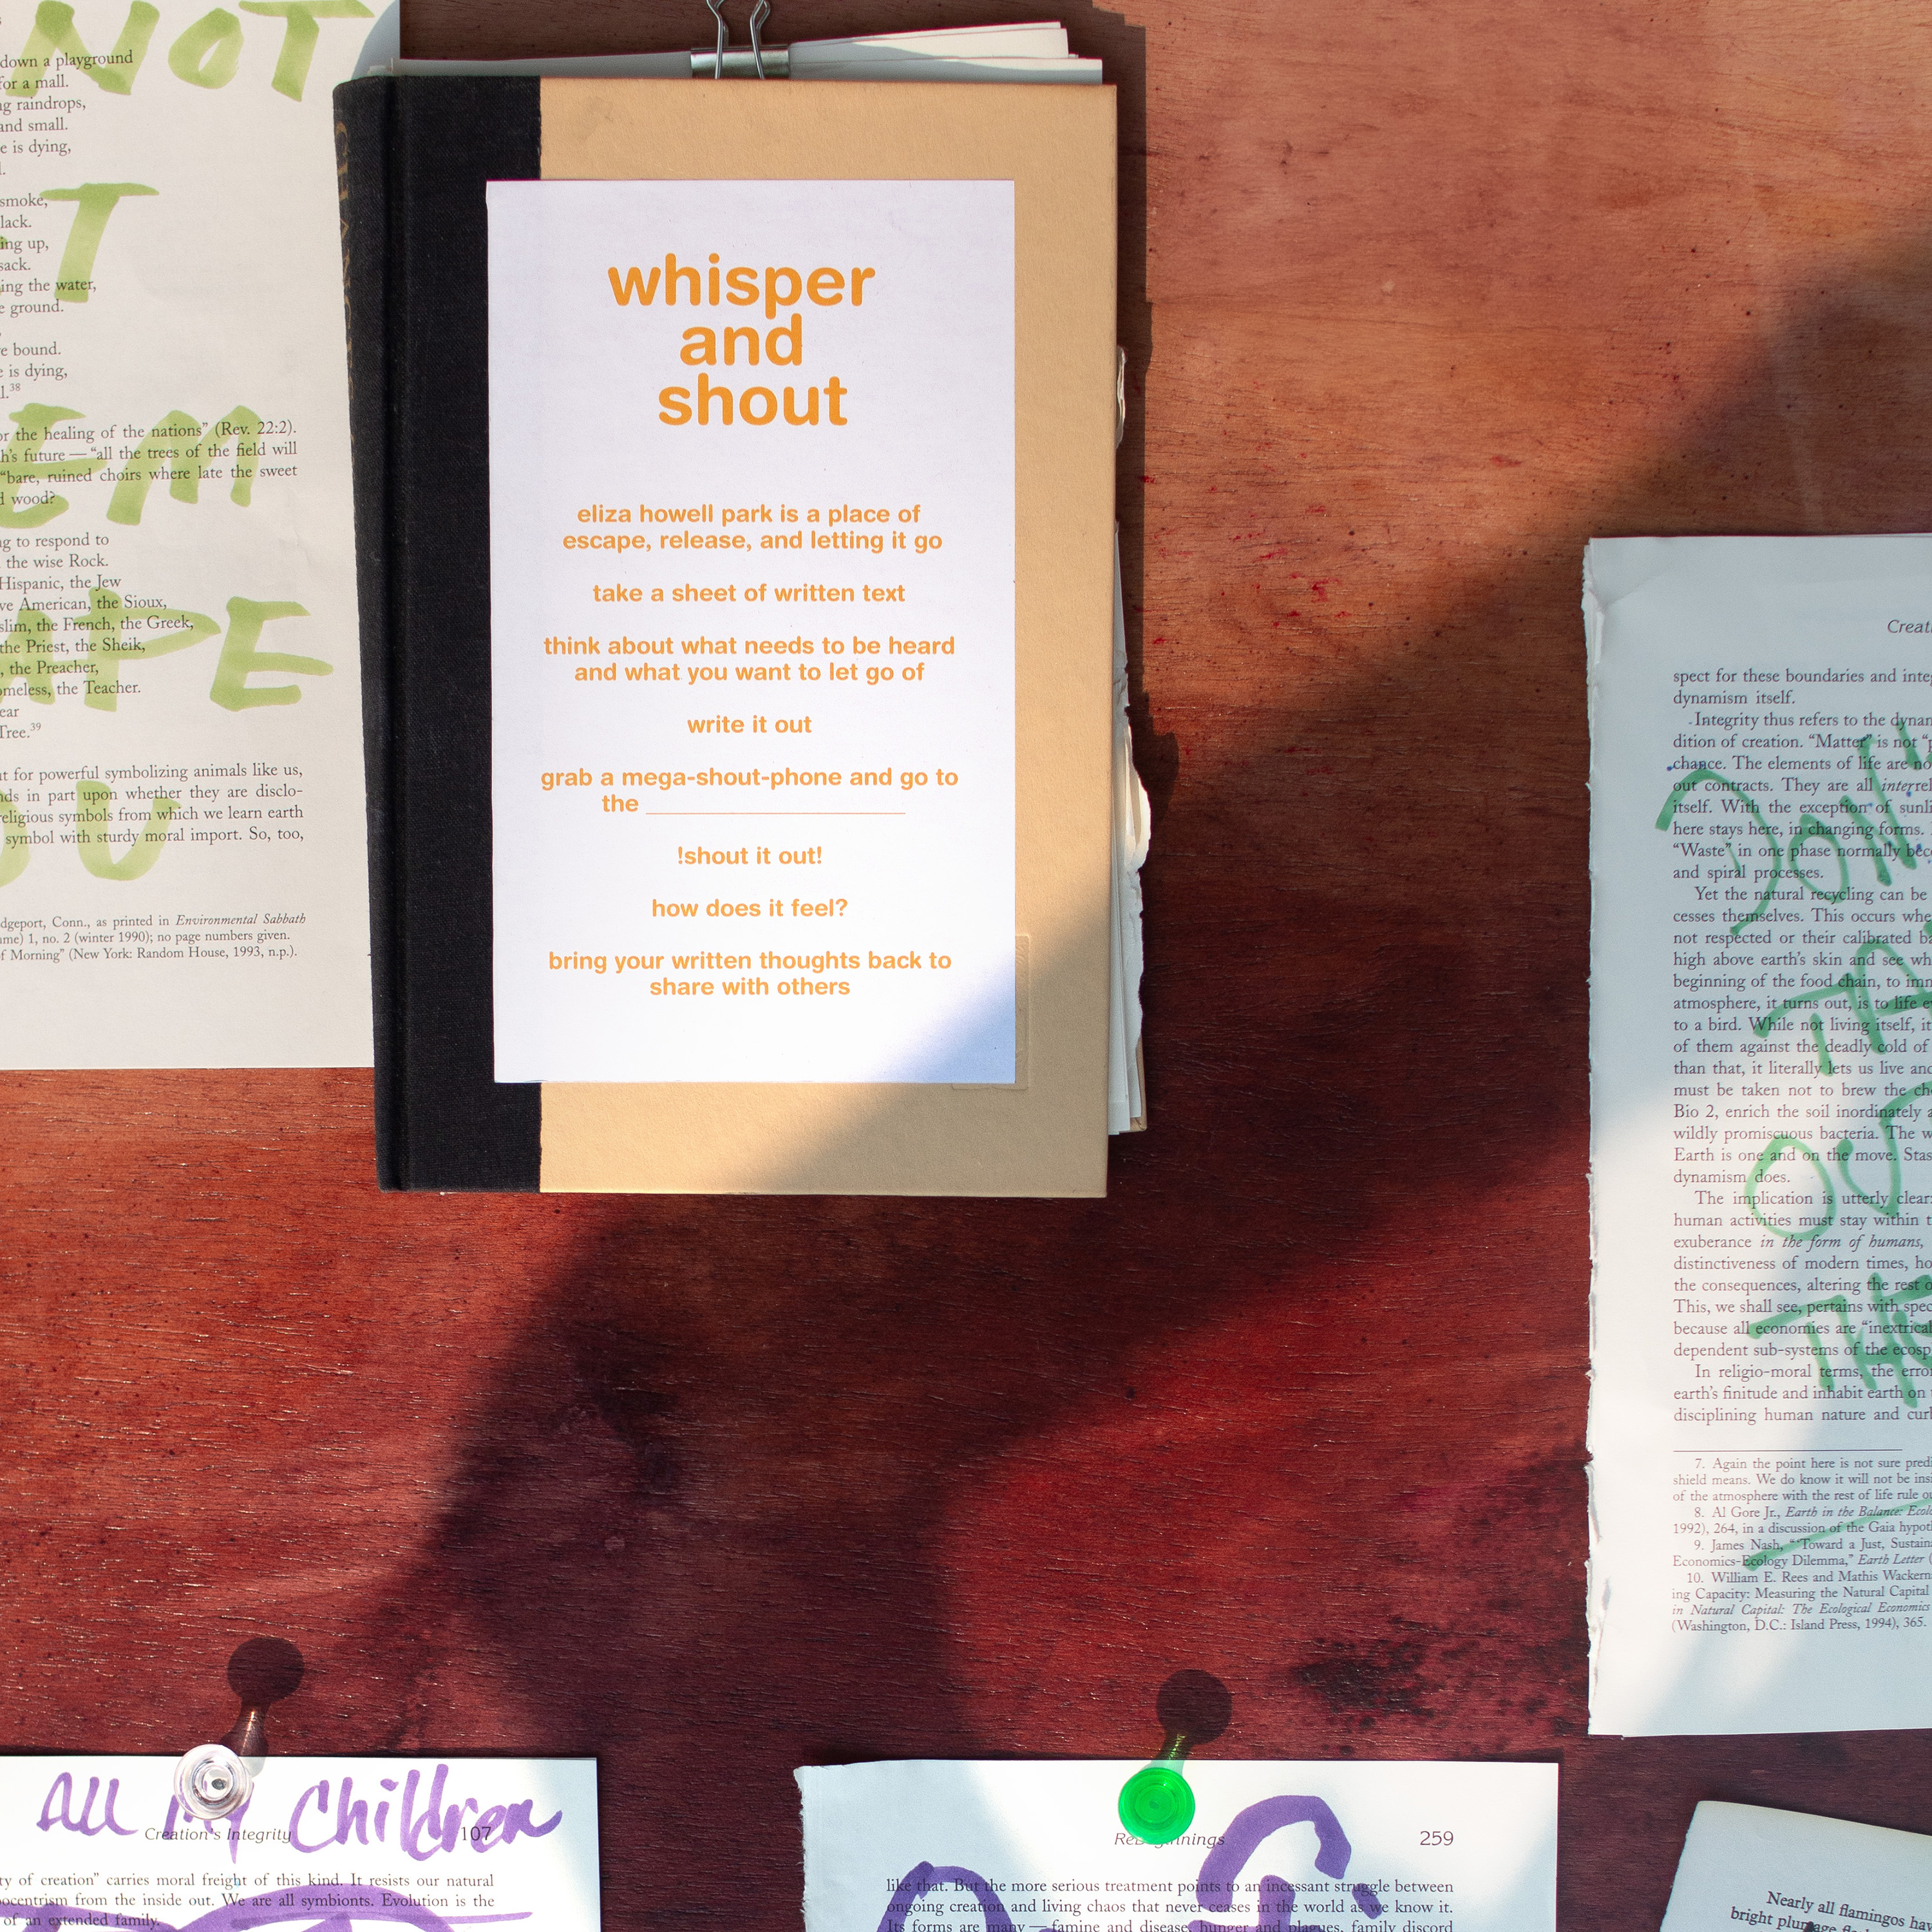 NOT
T
EM
APE
OU
down a playground
for a mall.
raindrops,
and small.
is dying,
smoke,
lack.
ing up,
sack.
ing the water,
ground.
bound.
is dying,
38
or the healing of the nations” (Rev. 22:2).
h’s future — “all the trees of the field will
“bare, ruined choirs where late the sweet
wood?
to respond to
the wise Rock.
Hispanic, the Jew
ve American, the Sioux,
slim, the French, the Greek,
the Priest, the Sheik,
, the Preacher,
omeless, the Teacher.
ear
Tree.39
for powerful symbolizing animals like us,
nds in part upon whether they are disclo-
religious symbols from which we learn earth
symbol with sturdy moral import. So, too,
dgeport, Conn., as printed in Environmental Sabbath
me) 1, no. 2 (winter 1990); no page numbers given.
f Morning” (New York: Random House, 1993, n.p.).
whisper
and
shout
eliza howell park is a place of
escape, release, and letting it go
take a sheet of written text
think about what needs to be heard
and what you want to let go of
write it out
grab a mega-shout-phone and go to
the ____________________
!shout it out!
how does it feel?
bring your written thoughts back to
share with others
Creati
spect for these boundaries and integ
dynamism itself.
Integrity thus refers to the dynam
dition of creation. “Matter” is not “p
chance. The elements of life are no
out contracts. They are all interrel
itself. With the exception of sunli
here stays here, in changing forms.
“Waste” in one phase normally beco
and spiral processes.
Yet the natural recycling can be
cesses themselves. This occurs whe
not respected or their calibrated ba
high above earth’s skin and see wh
beginning of the food chain, to imm
atmosphere, it turns out, is to life e
to a bird. While not living itself, it
of them against the deadly cold of
than that, it literally lets us live and
must be taken not to brew the che
Bio 2, enrich the soil inordinately a
wildly promiscuous bacteria. The w
Earth is one and on the move. Stas
dynamism does.
The implication is utterly clear:
human activities must stay within t
exuberance in the form of humans,
distinctiveness of modern times, ho
the consequences, altering the rest o
This, we shall see, pertains with spec
because all economies are “inextrical
dependent sub-systems of the ecosp
In religio-moral terms, the error
earth’s finitude and inhabit earth on
disciplining human nature and curb
7. Again the point here is not sure predi
shield means. We do know it will not be insi
of the atmosphere with the rest of life rule ou
8. Al Gore Jr., Earth in the Balance: Ecol
1992), 264, in a discussion of the Gaia hypot
9. James Nash, “Toward a Just, Sustain
Economics-Ecology Dilemma,” Earth Letter (
10. William E. Rees and Mathis Wackern
ing Capacity: Measuring the Natural Capital
in Natural Capital: The Ecological Economics
(Washington, D.C.: Island Press, 1994), 365.
DON'
TA
OU
THE
All My Children
Creation’s Integrity 107
ty of creation” carries moral freight of this kind. It resists our natural
ocentrism from the inside out. We are all symbionts. Evolution is the
of an extended family.
259
like that. But the more serious treatment points to an incessant struggle between
ongoing creation and living chaos that never ceases in the world as we know it.
Its forms are many — famine and disease, hunger and plagues, family discord
Nearly all flamingos hav
bright plumage